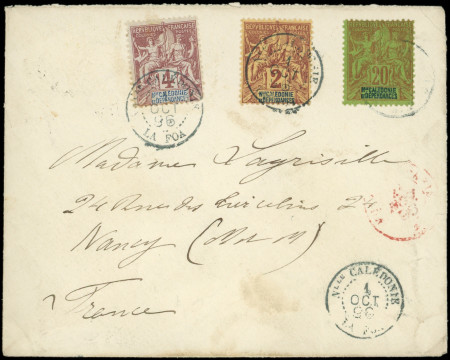 RÉPUBLIQUE FRANÇAISE
4
Nlle CALÉDONIE
ET DÉPENDANCES
OCT
96
LA FOA
RÉPUBLIQUE FRANÇAISE
2
Nlle CALÉDONIE
ET DÉPENDANCES
20
Nlle CALÉDONIE
ET DÉPENDANCES
Madame Lagrisille
24 Rue des 24
Nancy
France
Nlle CALÉDONIE
1
OCT
96
LA FOA